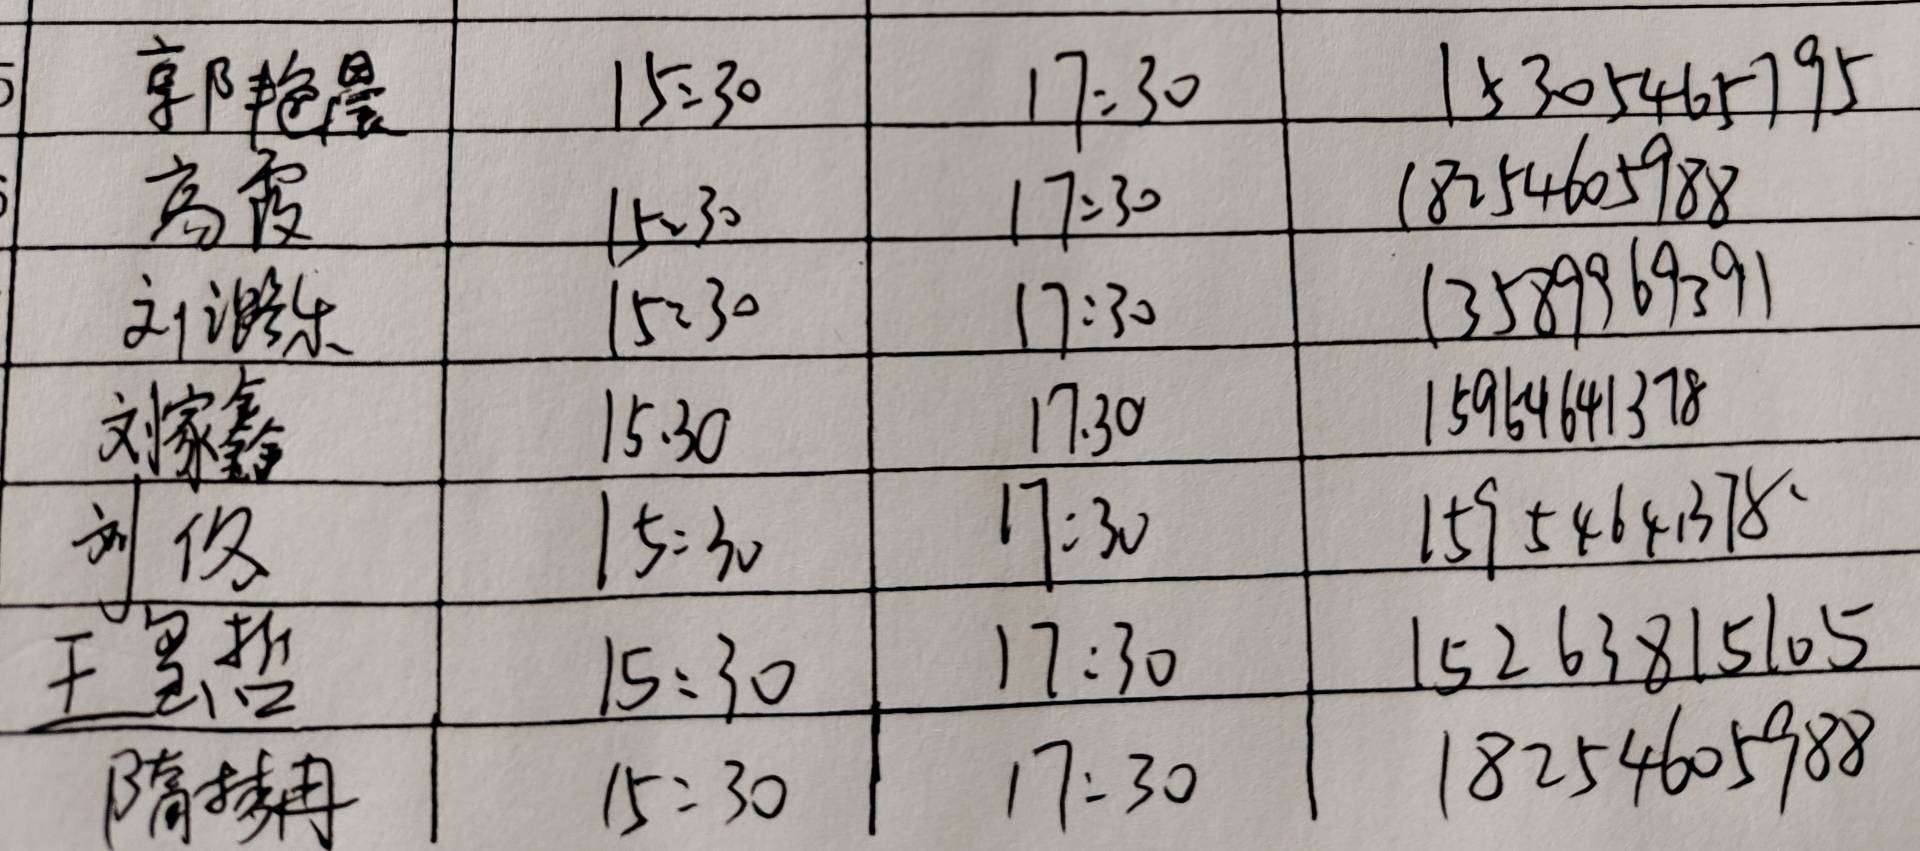 郭艳晨 15:30 17:30 15305465795
高霞 15:30 17:30 18254605988
刘潞乐 15:30 17:30 13589969391
刘家鑫 15.30 17.30 15964641378
刘俊 15:30 17:30 15954641378
王昱哲 15:30 17:30 15263815105
隋 冉 15:30 17:30 18254605988